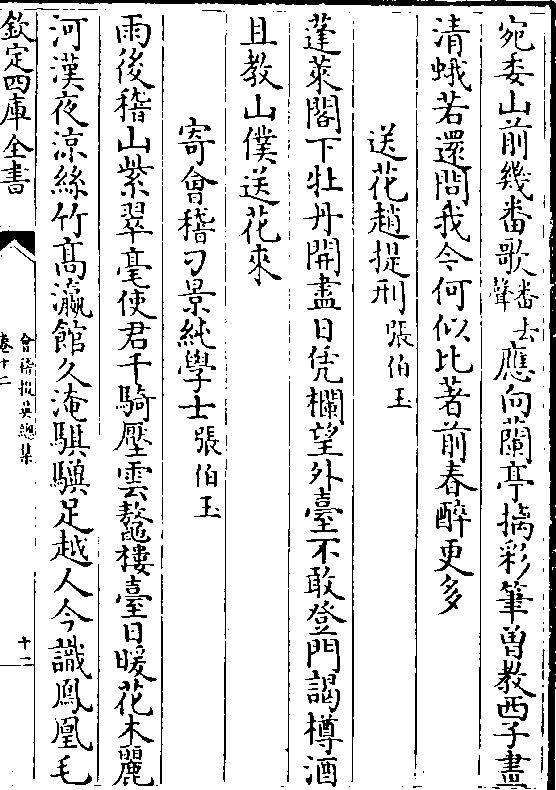 宛委山前幾畨歌畨去聲應向蘭亭摛彩筆曽教西子畫
清蛾若還問我今何似比著前春醉更多
送花趙提刑張伯玉
蓬萊閣下牡丹開盡日凭欄望外臺不敢登門謁樽酒
且教山僕送花來
寄會稽刁景純學士張伯玉
雨後稽山紫翠毫使君千騎壓雲鼇樓臺日暖花木麗
河漢夜涼絲竹髙瀛館久淹騏驥足越人今識鳳凰毛
欽定四庫全書
會稽掇英總集
卷十二
十二